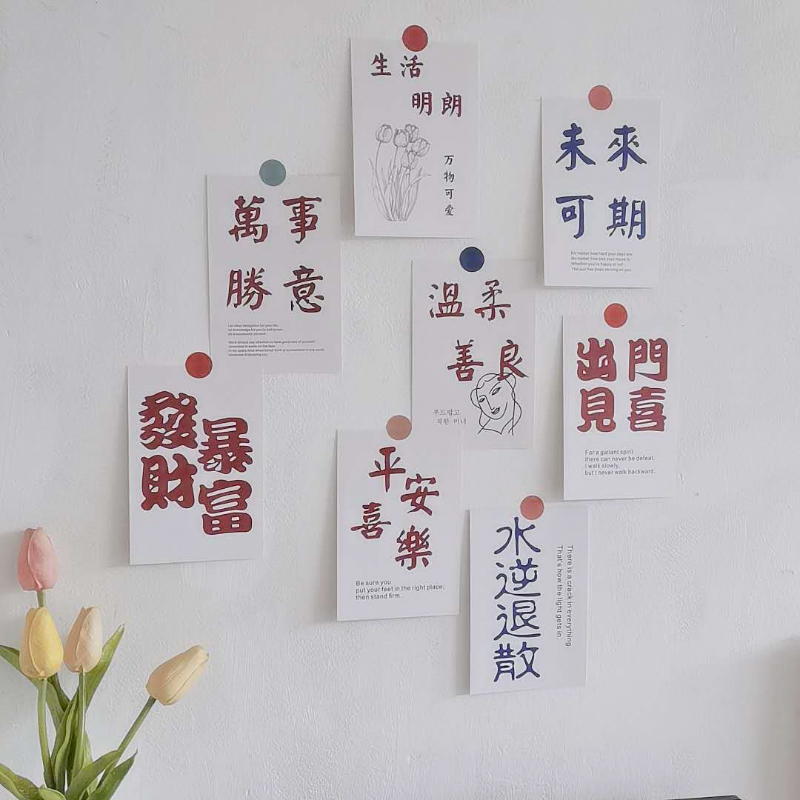 生活
明朗
万物可爱
未來
可期
萬事
勝意
溫柔
善良
부드럽고
착한 미녀
出門
見喜
For a gallant spirit
there can never be defeat.
I walk slowly,
but I never walk backward.
發財
暴富
平安
喜樂
Be sure you
put your feet in the right place,
then stand firm.
水逆退散
There is a crack in everything.
That's how the light gets in.